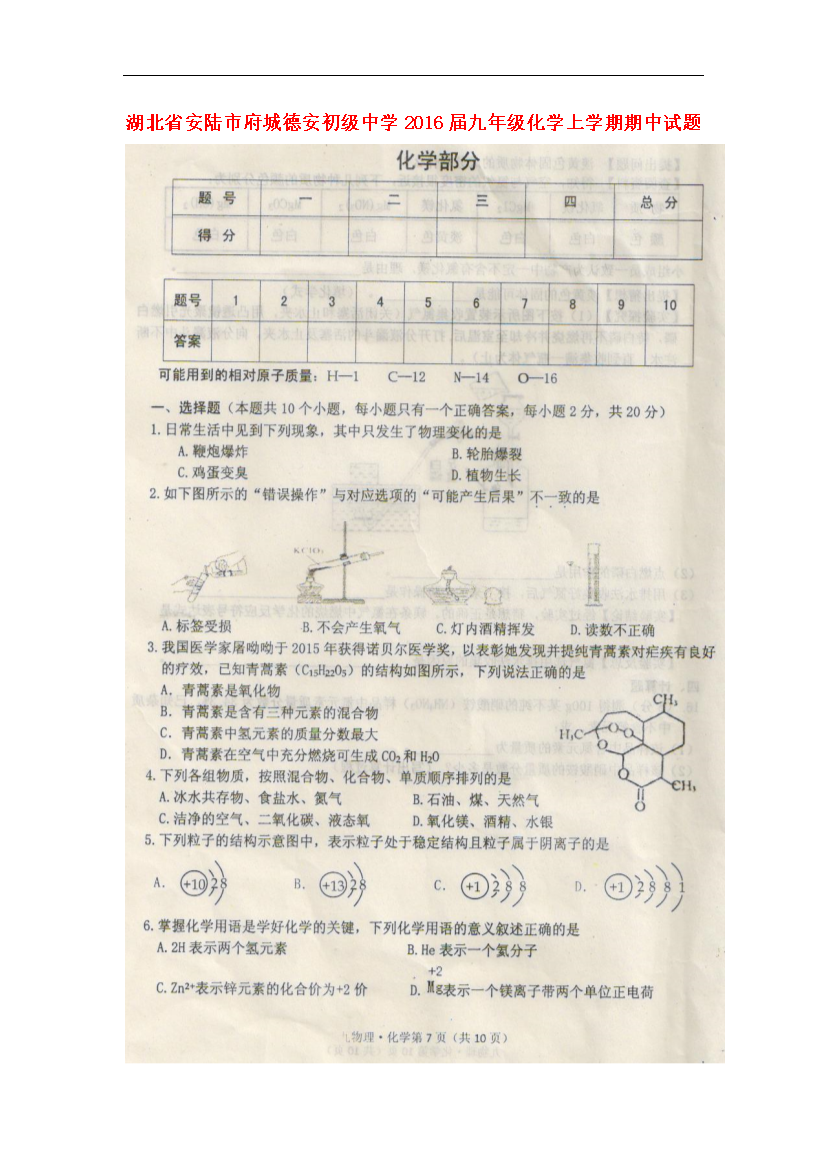 湖北省安陆市府城德安初级中学2016届九年级化学上学期期中试题
化学部分
题 号 一 二 三 四 总 分
得 分
题号 1 2 3 4 5 6 7 8 9 10
答案
可能用到的相对原子质量：H—1 C—12 N—14 O—16
一、选择题（本题共10个小题，每小题只有一个正确答案，每小题2分，共20分）
1.日常生活中见到下列现象，其中只发生了物理变化的是
A.鞭炮爆炸 B.轮胎爆裂
C.鸡蛋变臭 D.植物生长
2.如下图所示的“错误操作”与对应选项的“可能产生后果”不一致的是
KClO₃
A.标签受损 B.不会产生氧气 C.灯内酒精挥发 D.读数不正确
3.我国医学家屠呦呦于2015年获得诺贝尔医学奖，以表彰她发现并提纯青蒿素对疟疾有良好
的疗效，已知青蒿素（C₁₅H₂₂O₅）的结构如图所示，下列说法正确的是
A．青蒿素是氧化物
B．青蒿素是含有三种元素的混合物
C．青蒿素中氢元素的质量分数最大
D．青蒿素在空气中充分燃烧可生成CO₂和H₂O
CH₃
H₃C
O
O
O
O
O
CH₃
4.下列各组物质，按照混合物、化合物、单质顺序排列的是
A.冰水共存物、食盐水、氮气 B.石油、煤、天然气
C.洁净的空气、二氧化碳、液态氧 D.氧化镁、酒精、水银
5.下列粒子的结构示意图中，表示粒子处于稳定结构且粒子属于阴离子的是
A． +10 2 8 B． +13 2 8 C． +1 2 8 8 D． +1 2 8 8 1
6.掌握化学用语是学好化学的关键，下列化学用语的意义叙述正确的是
A.2H表示两个氢元素 B.He表示一个氦分子
+2
C.Zn²⁺表示锌元素的化合价为+2价 D. Mg表示一个镁离子带两个单位正电荷
九物理·化学第7页（共10页）